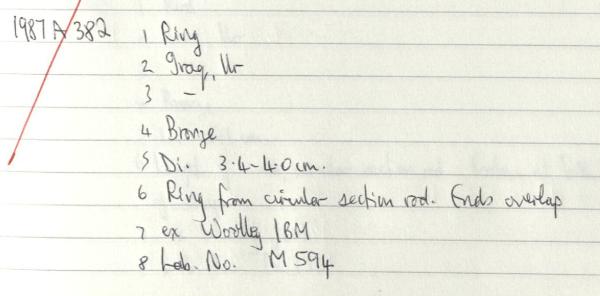 1987A382 1 Ring
2 Iraq, Ur
3 -
4 Bronze
5 Di. 3.4-4.0cm.
6 Ring from circular section rod. Ends overlap
7 ex Woolley / BM
8 Lab. No. M594